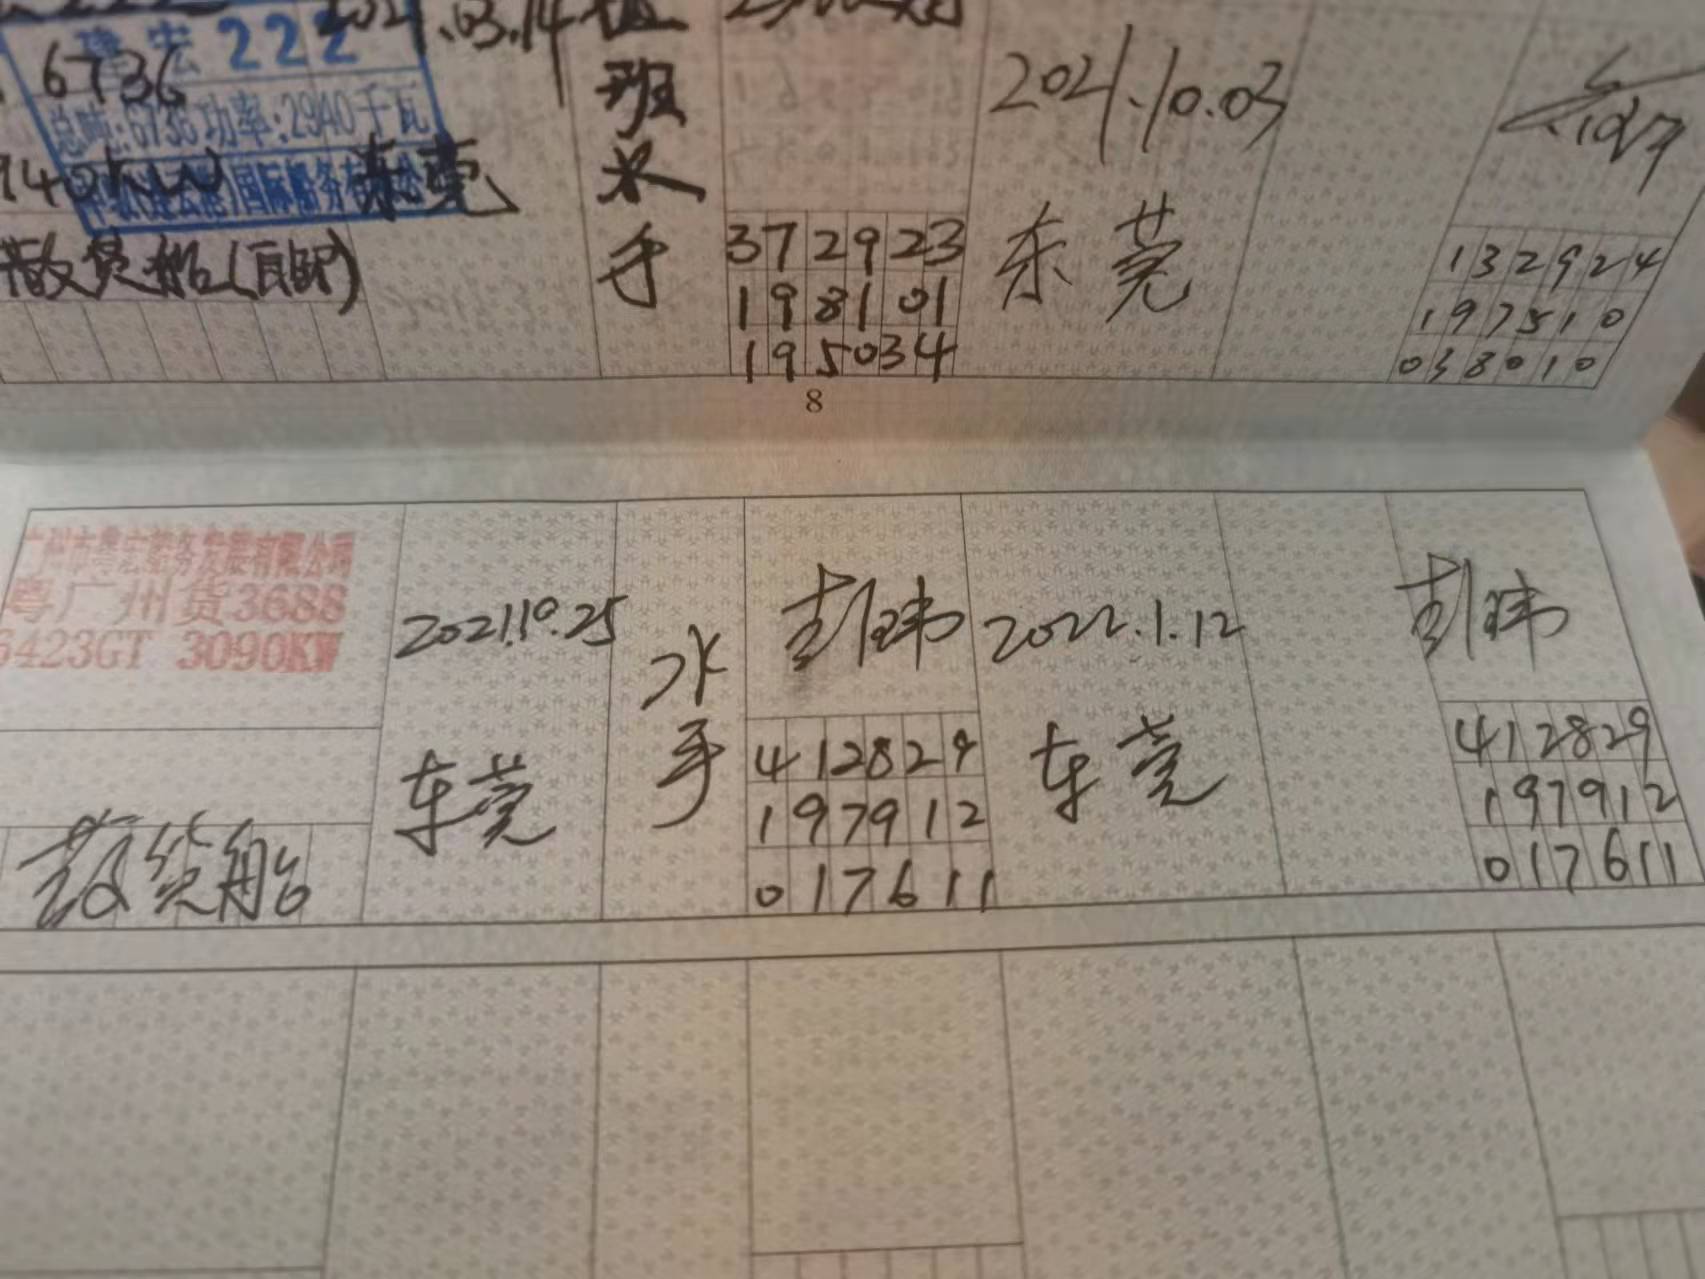 222
2021.03.14
值
6736
总吨:6736 功率:2940千瓦
班
2021.10.03
940KW
东莞
水
散货船(自卸)
手
372923
198101
195034
东莞
132924
197510
038010
8
广州市粤宏船务发展有限公司
粤广州货3688
6423GT 3090KW
2021.10.25
水
手
彭玮
2022.1.12
彭玮
散货船
东莞
412829
197912
017611
东莞
412829
197912
017611